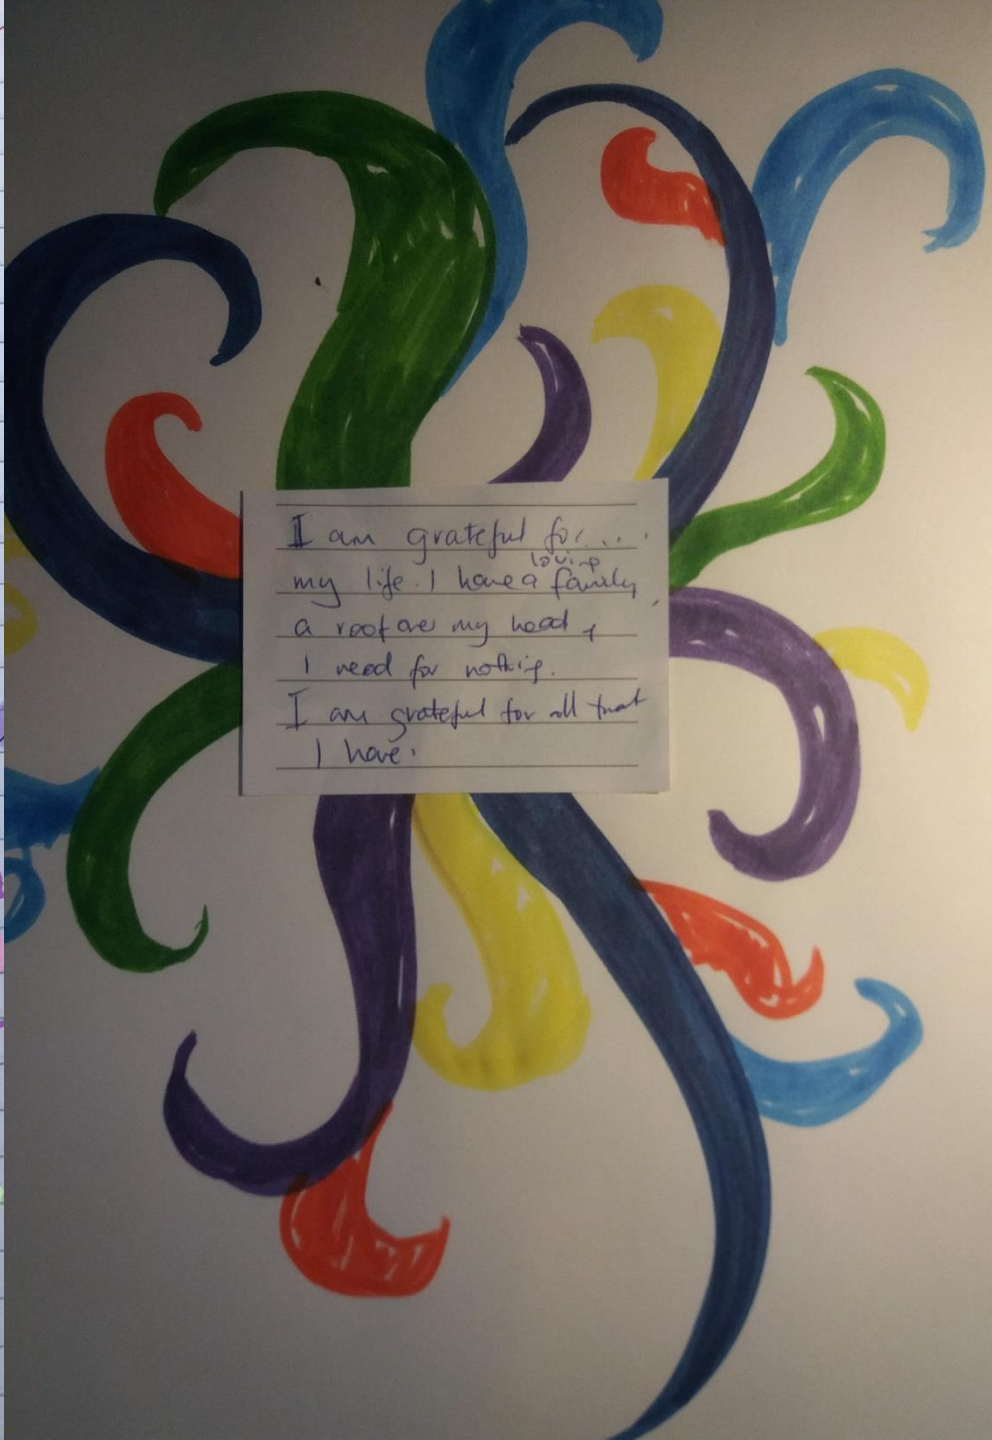 I am grateful for....
loving
my life. I have a family,
a roof over my head +
I need for nothing.
I am grateful for all that
I have.